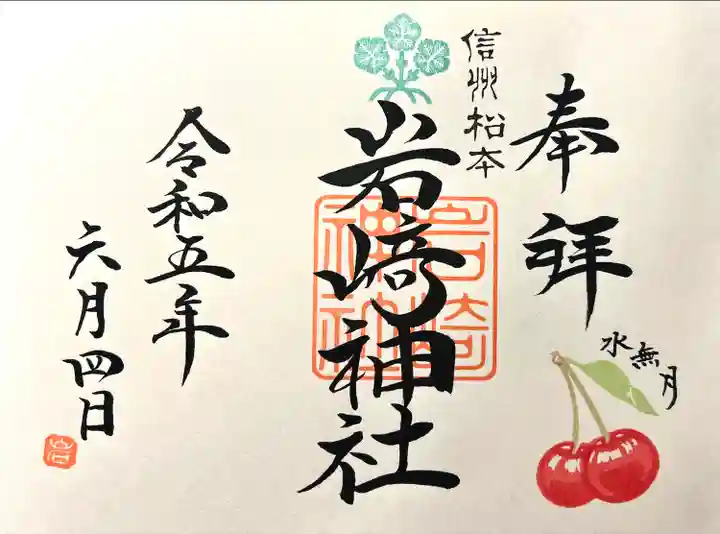 奉拝
水無月
信州松本
岩﨑神社
岩﨑神社
令和五年
六月四日
岩